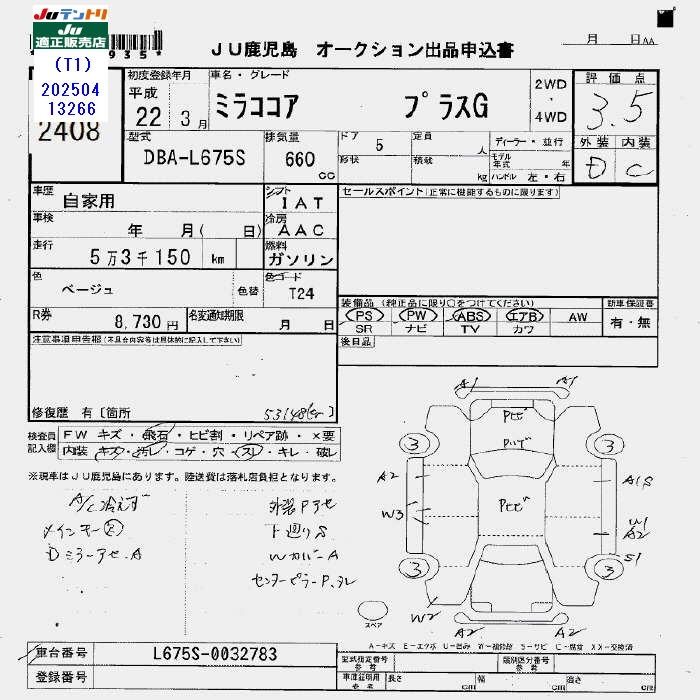 JUテントリ
JU
適正販売店
935*
(T1)
202504
13266
2408
JU鹿児島 オークション出品申込書
月 日AA
初度登録年月
平成
22年 3月
車名・グレード
ミラココア プラスG
2WD
・
4WD
評価点
3.5
外装 内装
D C
型式
DBA-L675S
排気量
660
CC
ドア
5
定員
人
形状
積載
kg
ディーラー・並行
モデル
年式 年
ハンドル 左・右
車歴
自家用
シフト
IAT
車検
年 月( 日)
冷房
AAC
走行
5万3千150 km
燃料
ガソリン
色
ベージュ
色替
色コード
T24
R券
8,730円
名変通知期限
月 日
セールスポイント(正常に機能するものに限ります)
装備品(純正品に限り〇をつけてください)
PS PW ABS エアB AW
SR ナビ TV カワ
新車保証書
有・無
後日品
注意事項申告報(不具合内容等は具体的に記入して下さい)
修復歴 有〔箇所
53148(km)
検査員
記入欄
FW キズ・飛石・ヒビ割・リペア跡・×要
内装・キズ・汚レ・コゲ・穴・スレ・キレ・破レ
※現車はJU鹿児島にあります。陸送費は落札店負担となります。
A/C冷えず
メインキー②
Dミラーアセ.A
外装Pアセ
下廻りS
WカバーA
センターピラーP.タレ
A1 A1
Pヒビ
Pハゲ
3 3
A2
W3
Pヒビ
A1S
W1
A2
S1
3 3
W2
A2 A2
スペア
A-キズ E-エクボ U-凹み W-補修跡 S-サビ C-腐食 XX-交換済
車台番号
L675S-0032783
登録番号
型式指定番号
参考
類別区分番号
参考
車庫証明用
参考
長さ cm
幅 cm
高さ cm